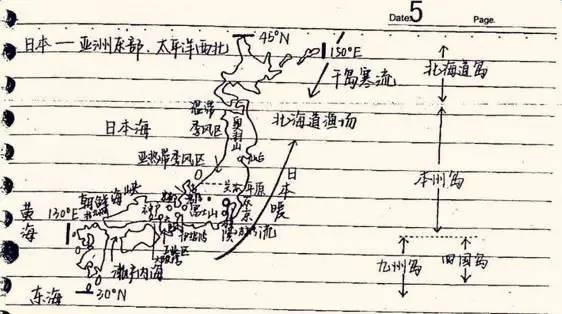 Date: 5 Page.
日本 — 亚洲东部、太平洋西北
45°N
150°E
千岛寒流
北海道岛
日本海
温带
季风区
奥羽山
北海道渔场
仙台
亚热带季风区
本州岛
日本暖流
朝鲜海峡
关东平原
东京
富士山
横滨
黄海
130°E
神户
濑户内海
九州岛
四国岛
东海
30°N